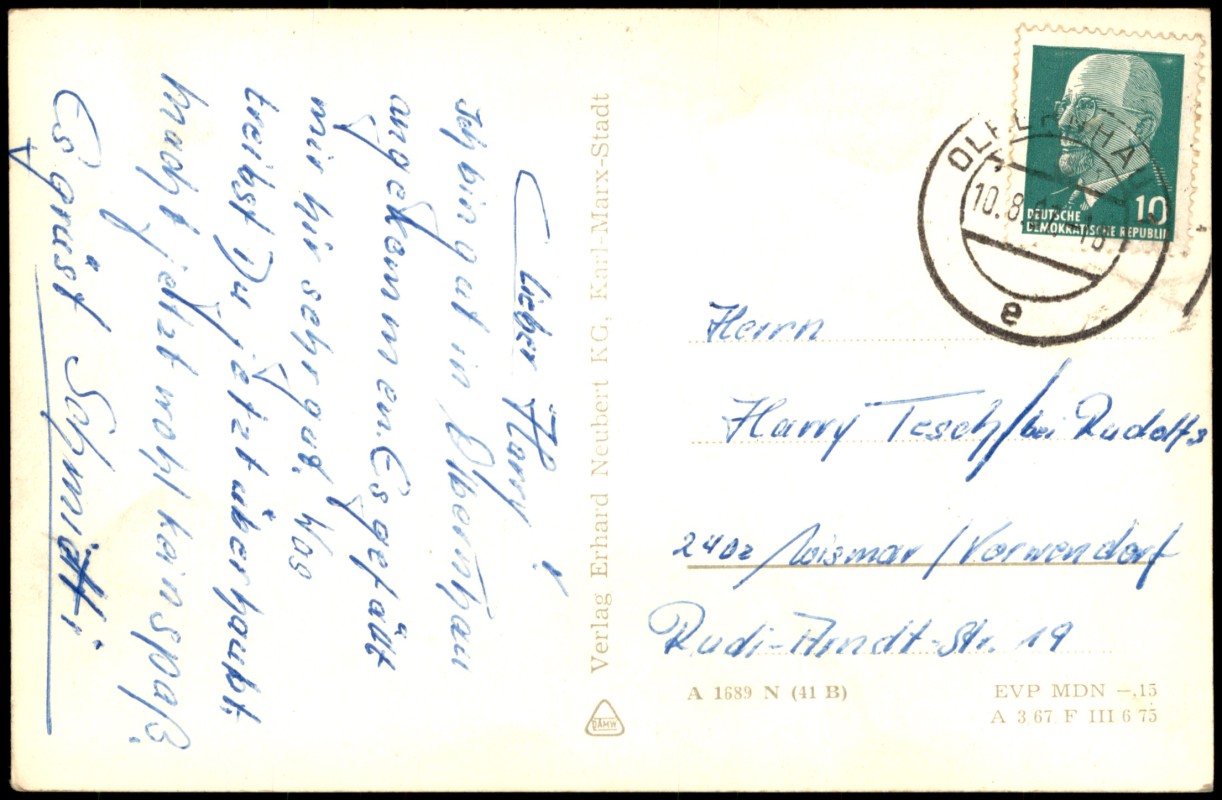 Lieber Harry!
Ich bin gut in Olbernhau
angekommen Es gefällt
mir hir sehr gut. Was
treibst Du jetzt überhaubt.
Macht jetzt wohl kein spaß.
Es grüst Schmidti
Verlag Erhard Neubert KG, Karl-Marx-Stadt
DAMW
DEUTSCHE
DEMOKRATISCHE REPUBLIK
10
10.8.
e
4
Herrn
Harry Tesch/bei Rudolfs
2402 Wismar/Vorwendorf
Rudi-Arndt-Str. 19
A 1689 N (41 B)
EVP MDN —,15
A 3 67 F III 6 75